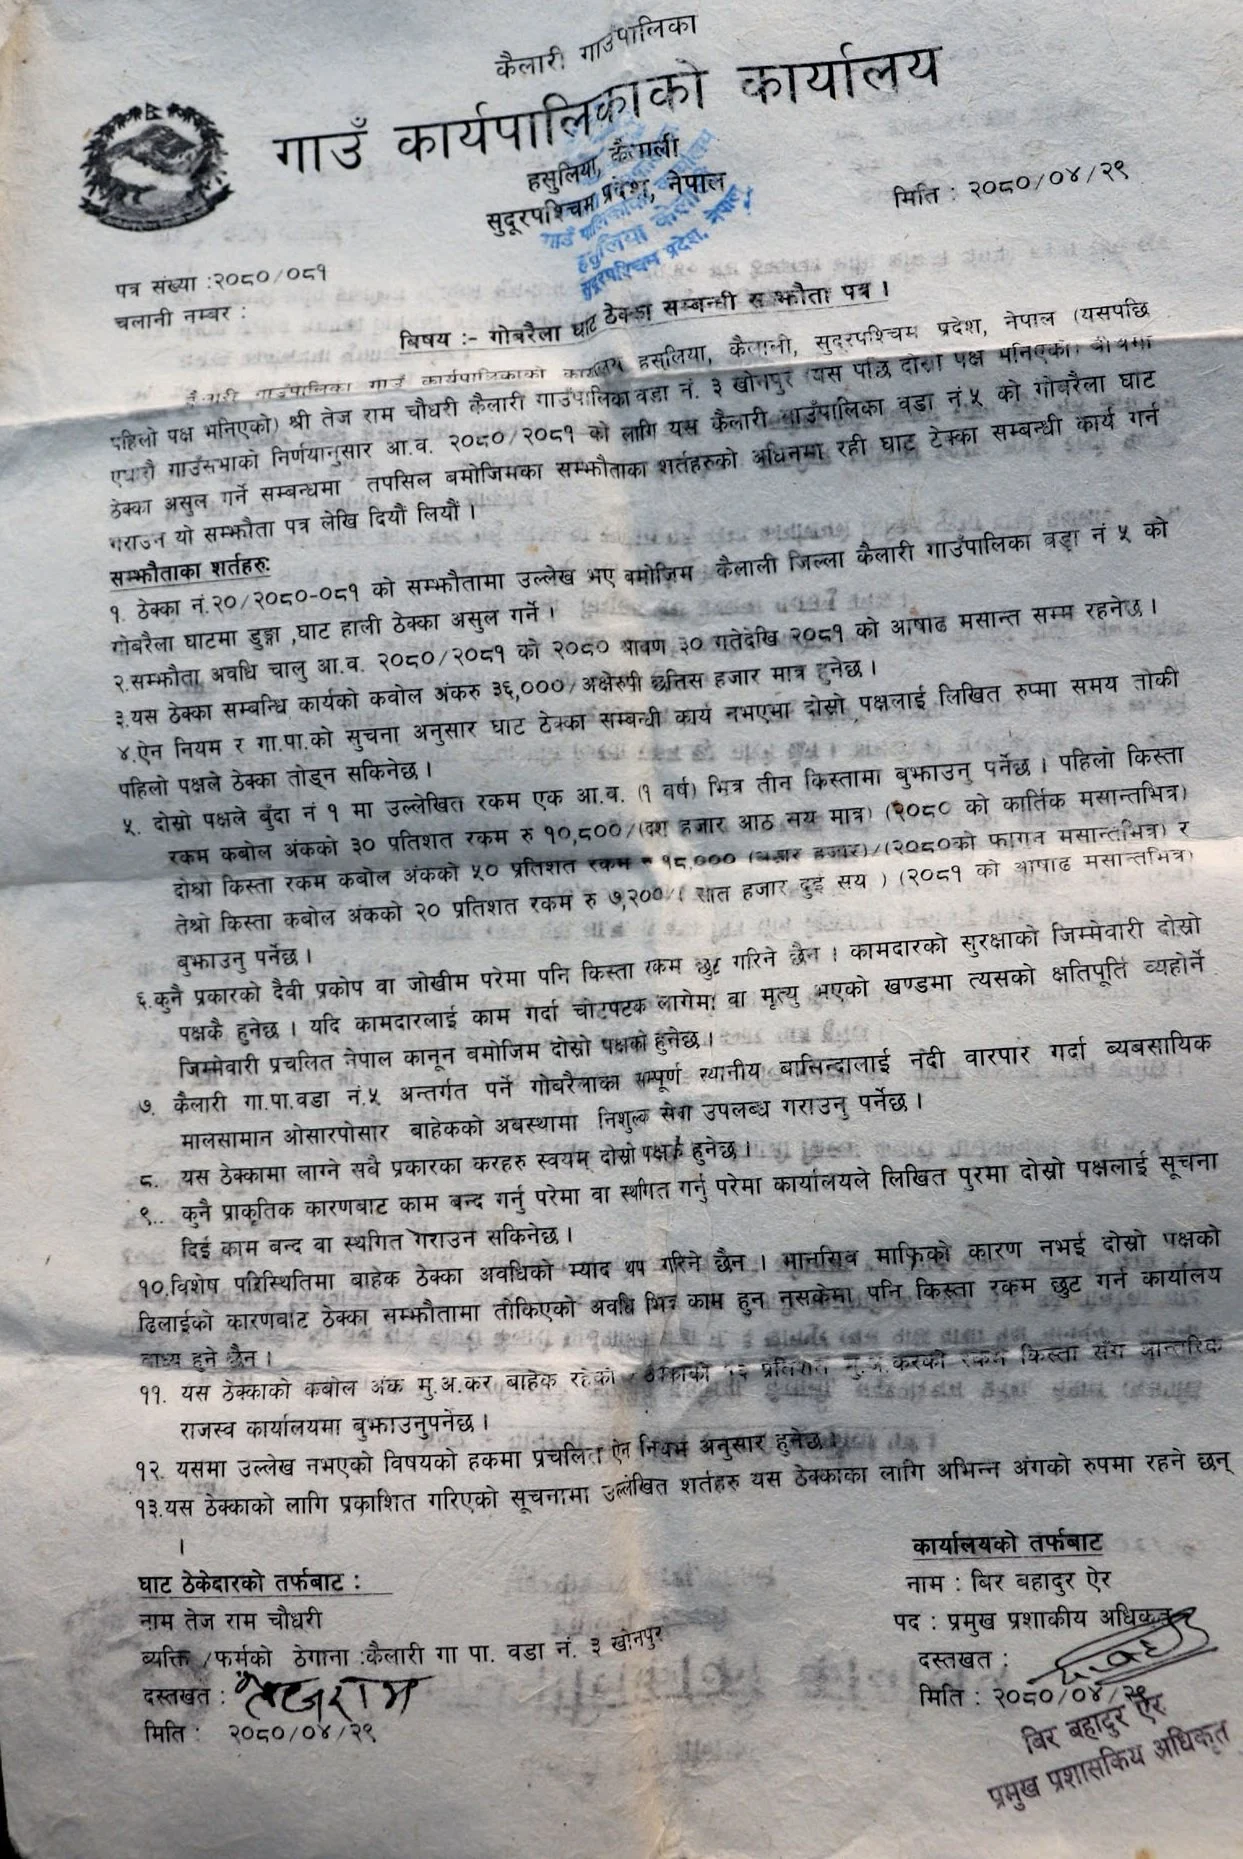 कैलारी गाउँपालिका
गाउँ कार्यपालिकाको कार्यालय
हसुलिया, कैलाली
सुदूरपश्चिम प्रदेश, नेपाल
मिति : २०८०/०४/२९
पत्र संख्या :२०८०/०८१
चलानी नम्बर :
बिषय :- गोबरैला घाट ठेक्का सम्बन्धी स झौता पत्र ।
कैलारी गाउँपालिका गाउँ कार्यपालिकाको कार्यालय हसुलिया, कैलाली, सुदरपश्चिम प्रदेश, नेपाल (यसपछि
पहिलो पक्ष भनिएको) श्री तेज राम चौधरी कैलारी गाउँपालिका वडा नं. ३ खोनपुर (यस पछि दोस्रो पक्ष भनिएको)
गाउँसभाको निर्णयानुसार आ.व. २०८०/२०८१ को लागि यस कैलारी गाउँपालिका वडा नं.५ को गोबरैला घाट
ठेक्का असुल गर्ने सम्बन्धमा तपसिल बमोजिमका सम्झौताका शर्तहरुको अधिनमा रही घाट टेक्का सम्बन्धी कार्य गर्न
गराउन यो सम्झौता पत्र लेखि दियौं लियौं ।
सम्झौताका शर्तहरु:
१. ठेक्का नं.२०/२०८०-०८१ को सम्झौतामा उल्लेख भए बमोजिम कैलाली जिल्ला कैलारी गाउँपालिका वडा नं ५ को
गोबरैला घाटमा डुङ्गा ,घाट हाली ठेक्का असुल गर्ने ।
२.सम्झौता अवधि चालु आ.व. २०८०/२०८१ को २०८० श्रावण ३० गतेदेखि २०८१ को आषाढ मसान्त सम्म रहनेछ ।
३.यस ठेक्का सम्बन्धि कार्यको कवोल अंकरु ३६,०००/अक्षेरुपी छत्तिस हजार मात्र हुनेछ ।
४.ऐन नियम र गा.पा.को सुचना अनुसार घाट ठेक्का सम्बन्धी कार्य नभएमा दोस्रो पक्षलाई लिखित रुप्मा समय तोकी
पहिलो पक्षले ठेक्का तोड्न सकिनेछ ।
५. दोस्रो पक्षले बुँदा नं १ मा उल्लेखित रकम एक आ.व. (१ वर्ष) भित्र तीन किस्तामा बुझाउनु पर्नेछ । पहिलो किस्ता
रकम कबोल अंकको ३० प्रतिशत रकम रु १०,८००/(दश हजार आठ सय मात्र) (२०८० को कार्तिक मसान्तभित्र)
दोश्रो किस्ता रकम कबोल अंकको ५० प्रतिशत रकम १८,००० (अठार हजार)/(२०८०को फागन मसान्तभित्र) र
तेश्रो किस्ता कबोल अंकको २० प्रतिशत रकम रु ७,२००/( सात हजार दुई सय ) (२०८१ को आषाढ मसान्तभित्र)
बुझाउनु पर्नेछ ।
६.कुनै प्रकारको दैवी प्रकोप वा जोखीम परेमा पनि किस्ता रकम छुट गरिने छैन । कामदारको सुरक्षाको जिम्मेवारी दोस्रो
पक्षकै हुनेछ । यदि कामदारलाई काम गर्दा चोटपटक लागेमा वा मृत्यु भएको खण्डमा त्यसको क्षतिपूर्ति व्यहोर्ने
जिम्मेवारी प्रचलित नेपाल कानून बमोजिम दोस्रो पक्षको हुनेछ ।
७. कैलारी गा.पा.वडा नं.५ अन्तर्गत पर्ने गोबरैलाका सम्पूर्ण स्थानीय बासिन्दालाई नदी वारपार गर्दा ब्यबसायिक
मालसामान ओसारपोसार बाहेकको अवस्थामा निशुल्क सेवा उपलब्ध गराउनु पर्नेछ ।
८. यस ठेक्कामा लाग्ने सवै प्रकारका करहरु स्वयम् दोस्रो पक्षकै हुनेछ ।
९.. कुनै प्राकृतिक कारणबाट काम बन्द गर्नु परेमा वा स्थगित गर्नु परेमा कार्यालयले लिखित पुरमा दोस्रो पक्षलाई सूचना
दिई काम बन्द वा स्थगित गराउन सकिनेछ ।
१०.विशेष परिस्थितिमा बाहेक ठेक्का अवधिको म्याद थप गरिने छैन । मानसिव माफिको कारण नभई दोस्रो पक्षको
ढिलाईको कारणवाट ठेक्का सम्झौतामा तोकिएको अवधि भित्र काम हुन नसकेमा पनि किस्ता रकम छुट गर्न कार्यालय
वाध्य हुने छैन ।
११. यस ठेक्काको कबोल अंक मु.अ.कर बाहेक रहेको ठेक्काको प्रतिशत मु.अ.करको रकम किस्ता सँग आन्तरिक
राजस्व कार्यालयमा बुझाउनुपर्नेछ ।
१२. यसमा उल्लेख नभएको विषयको हकमा प्रचलित ऐन नियम अनुसार हुनेछ ।
१३.यस ठेक्काको लागि प्रकाशित गरिएको सूचनामा उल्लेखित शर्तहरु यस ठेक्काका लागि अभिन्न अंगको रुपमा रहने छन्
।
घाट ठेकेदारको तर्फबाट :
नाम तेज राम चौधरी
ब्यक्ति /फर्मको ठेगाना :कैलारी गा पा. वडा नं. ३ खोनपुर
दस्तखत : तेजराम
मिति : २०८०/०४/२९
कार्यालयको तर्फबाट
नाम : बिर बहादुर ऐर
पद : प्रमुख प्रशाकीय अधिकृत
दस्तखत :
मिति : २०८०/०४/२९
बिर बहादुर ऐर
प्रमुख प्रशासकिय अधिकृत